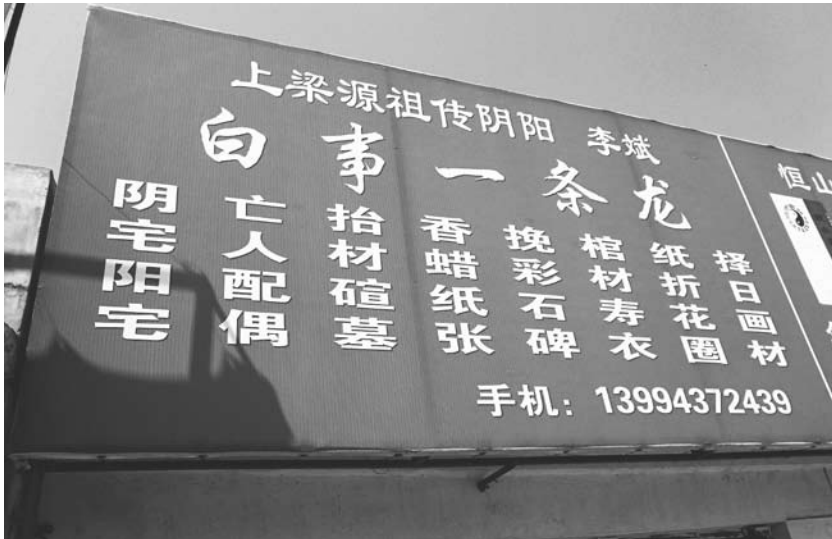 上梁源祖传阴阳 李斌
白事一条龙
阴宅阳宅
亡人配偶
抬材碹墓
香蜡纸张
挽彩石碑
棺材寿衣
纸折花圈
择日画材
手机：13994372439
恒山